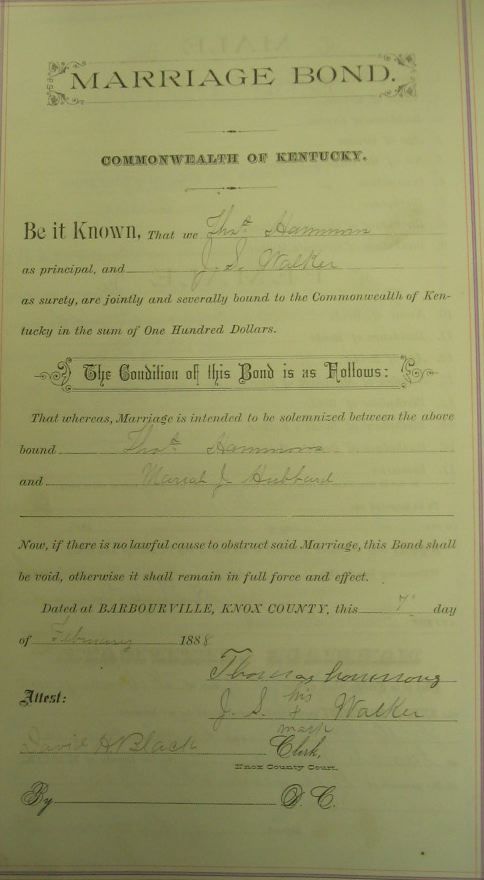 MARRIAGE BOND.
COMMONWEALTH OF KENTUCKY.
Be it Known, That we Thos Hammons
as principal, and J. S. Walker
as surety, are jointly and severally bound to the Commonwealth of Ken-
tucky in the sum of One Hundred Dollars.
The Condition of this Bond is as Follows:
That whereas, Marriage is intended to be solemnized between the above
bound Thos Hammons
and Mariah J Hubbard
Now, if there is no lawful cause to obstruct said Marriage, this Bond shall
be void, otherwise it shall remain in full force and effect.
Dated at BARBOURVILLE, KNOX COUNTY, this 7" day
of February 1888
Thomas
Attest:
his
J. S. + Walker
mark
David H Black Clerk,
Knox County Court.
By D. C.